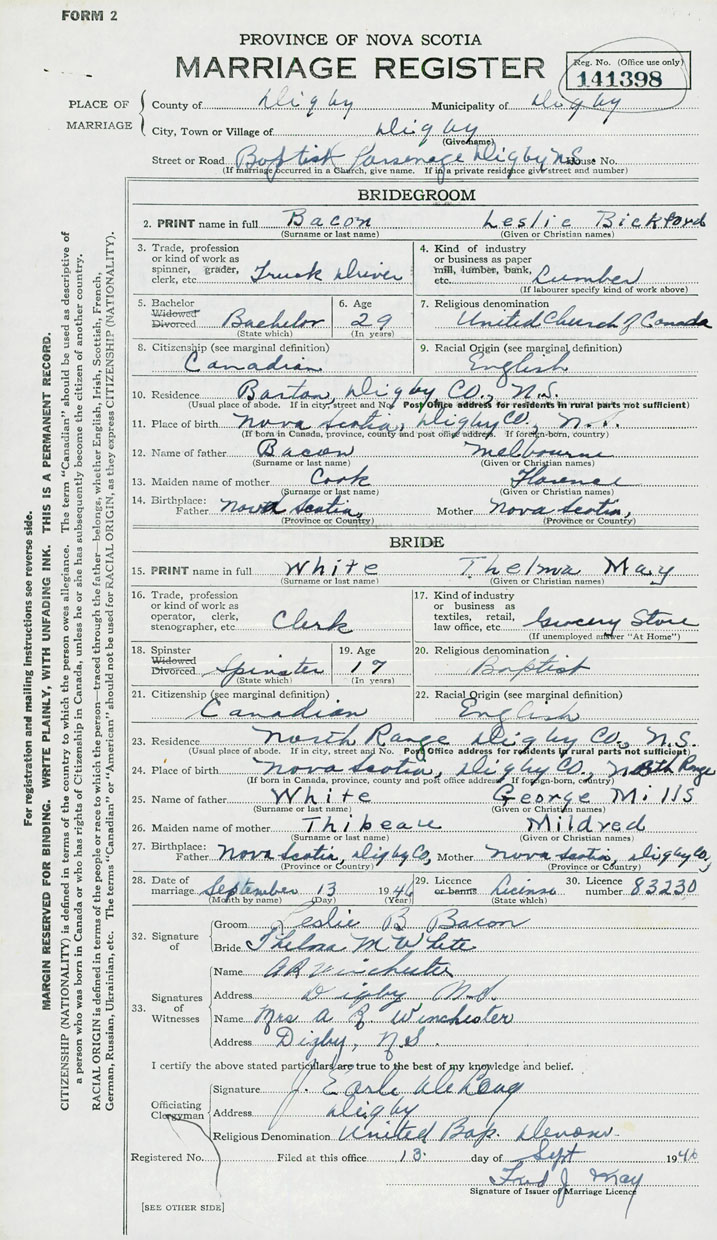 FORM 2
PROVINCE OF NOVA SCOTIA
MARRIAGE REGISTER
Reg. No. (Office use only)
141398
PLACE OF MARRIAGE
County of Digby Municipality of Digby
City, Town or Village of Digby
(Give name)
Street or Road Baptist Parsonage Digby N.S. House No.
(If marriage occurred in a Church, give name. If in a private residence give street and number)
BRIDEGROOM
2. PRINT name in full Bacon Leslie Bickford
(Surname or last name) (Given or Christian names)
3. Trade, profession or kind of work as spinner, grader, clerk, etc. Truck Driver
4. Kind of industry or business as paper mill, lumber, bank, etc. Lumber
(If labourer specify kind of work above)
5. Bachelor Widowed Divorced Bachelor
(State which)
6. Age 29
(In years)
7. Religious denomination United Church of Canada
8. Citizenship (see marginal definition) Canadian
9. Racial Origin (see marginal definition) English
10. Residence Barton, Digby CO., N.S.
(Usual place of abode. If in city, street and No. Post Office address for residents in rural parts not sufficient)
11. Place of birth Nova Scotia, Digby CO., N.S.
(If born in Canada, province, county and post office address. If foreign-born, country)
12. Name of father Bacon Melbourne
(Surname or last name) (Given or Christian names)
13. Maiden name of mother Cook Florence
(Surname or last name) (Given or Christian names)
14. Birthplace: Father Nova Scotia, Mother Nova Scotia,
(Province or Country) (Province or Country)
BRIDE
15. PRINT name in full White Thelma May
(Surname or last name) (Given or Christian names)
16. Trade, profession or kind of work as operator, clerk, stenographer, etc. Clerk
17. Kind of industry or business as textiles, retail, law office, etc. Grocery Store
(If unemployed answer "At Home")
18. Spinster Widowed Divorced Spinster
(State which)
19. Age 17
(In years)
20. Religious denomination Baptist
21. Citizenship (see marginal definition) Canadian
22. Racial Origin (see marginal definition) English
23. Residence North Range Digby Co., N.S.
(Usual place of abode. If in city, street and No. Post Office address for residents in rural parts not sufficient)
24. Place of birth Nova Scotia, Digby CO., North Range
(If born in Canada, province, county and post office address. If foreign-born, country)
25. Name of father White George Mills
(Surname or last name) (Given or Christian names)
26. Maiden name of mother Thibeau Mildred
(Surname or last name) (Given or Christian names)
27. Birthplace: Father Nova Scotia, Digby Co, Mother Nova Scotia, Digby Co,
(Province or Country) (Province or Country)
28. Date of marriage September 13 1946
(Month by name) (Day) (Year)
29. Licence or banns License
(State which)
30. Licence number 83230
32. Signature of
Groom Leslie B Bacon
Bride Thelma M White
33. Signatures of Witnesses
Name A R Winchester
Address Digby N.S.
Name Mrs A R. Winchester
Address Digby, N.S.
I certify the above stated particulars are true to the best of my knowledge and belief.
Officiating Clergyman
Signature J. Earle
Address Digby
Religious Denomination United Bap.
Registered No. Filed at this office 13 day of Sept 1946
Fred J. May
Signature of Issuer of Marriage Licence
[SEE OTHER SIDE]
For registration and mailing instructions see reverse side.
MARGIN RESERVED FOR BINDING. WRITE PLAINLY, WITH UNFADING INK. THIS IS A PERMANENT RECORD.
CITIZENSHIP (NATIONALITY) is defined in terms of the country to which the person owes allegiance. The term "Canadian" should be used as descriptive of
a person who was born in Canada or who has rights of Citizenship in Canada, unless he or she has subsequently become the citizen of another country.
RACIAL ORIGIN is defined in terms of the people or race to which the person—traced through the father—belongs, whether English, Irish, Scottish, French,
German, Russian, Ukrainian, etc. The terms "Canadian" or "American" should not be used for RACIAL ORIGIN, as they express CITIZENSHIP (NATIONALITY).